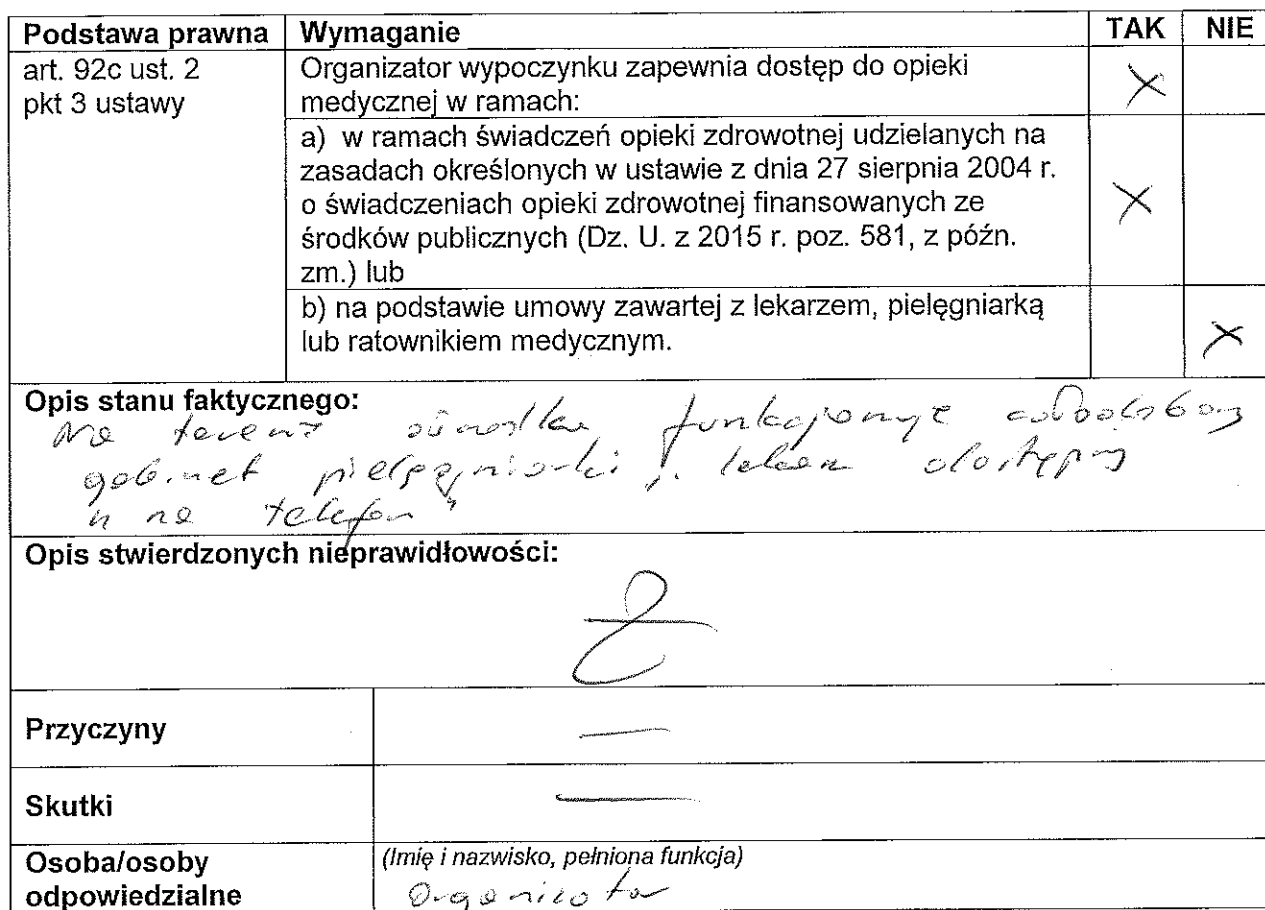 Podstawa prawna Wymaganie TAK NIE
art. 92c ust. 2
pkt 3 ustawy
Organizator wypoczynku zapewnia dostęp do opieki
medycznej w ramach: X
a) w ramach świadczeń opieki zdrowotnej udzielanych na
zasadach określonych w ustawie z dnia 27 sierpnia 2004 r.
o świadczeniach opieki zdrowotnej finansowanych ze
środków publicznych (Dz. U. z 2015 r. poz. 581, z późn.
zm.) lub X
b) na podstawie umowy zawartej z lekarzem, pielęgniarką
lub ratownikiem medycznym. X
Opis stanu faktycznego:
Na terenie ośrodka funkcjonuje
gabinet pielęgniarki, lekarz dostępny
"na telefon"
Opis stwierdzonych nieprawidłowości:
Przyczyny —
Skutki —
Osoba/osoby
odpowiedzialne
(Imię i nazwisko, pełniona funkcja)
Organizator